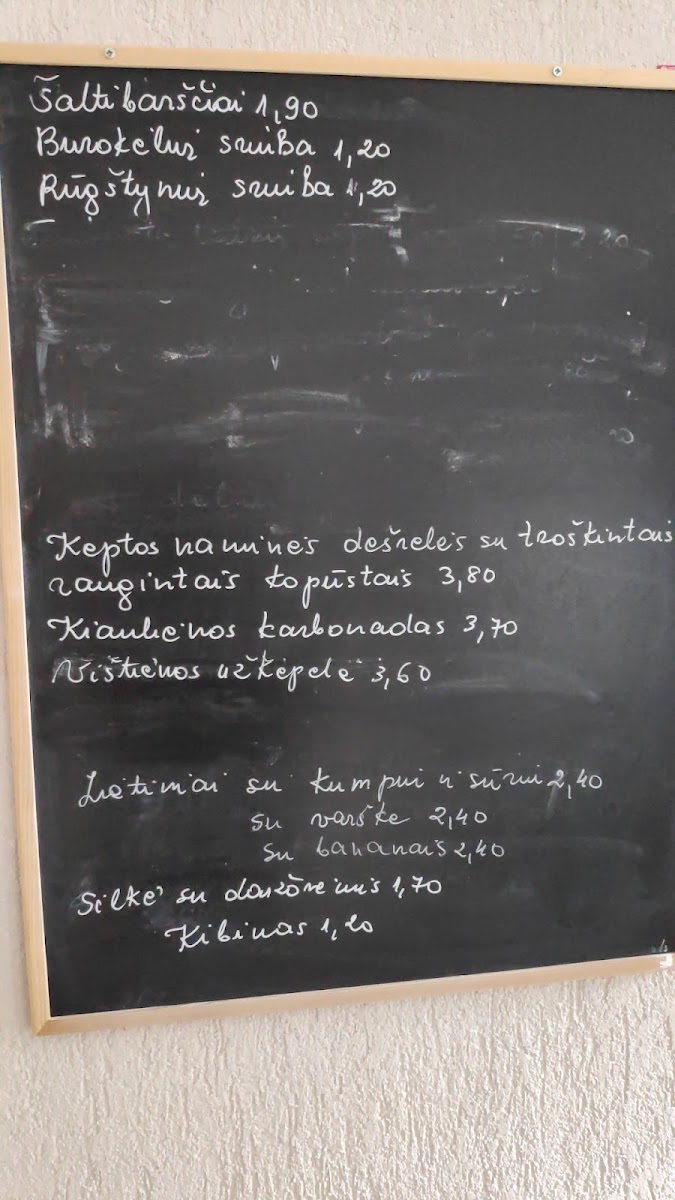 Šaltibarščiai 1,90
Burokėlių sriuba 1,20
Rūgštynių sriuba 1,20
Keptos naminės dešrelės su troškintais
raugintais kopūstais 3,80
Kiaulienos karbonadas 3,70
Vištienos užkepėlė 3,60
Lietiniai su kumpiu ir sūriu 2,40
su varške 2,40
su bananais 2,40
Silkė su daržovėmis 1,70
Kibinas 1,20